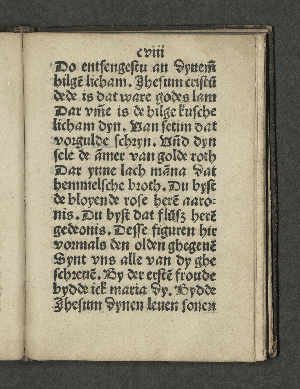 cviii
Do entfengestu an dynem̄
hilgē licham. Jhesum cristū
dede is dat ware godes lam
Dar vm̄e is de hilge kusche
licham dyn. Van setim dat
vorgulde schryn. Vn̄d dyn
sele de am̄er van golde roth
Dar ynne lach man̄a dat
hemmelsche broth. Du byst
de bloyende rose herē aaro-
nis. Du byst dat flüsz herē
gedeonis. Desse figuren hir
vormals den olden ghegenē
Synt vns alle van dy ghe
schreuē. By der erstē froude
bydde ick maria dy. Bydde
Jhesum dynen leuen sonen